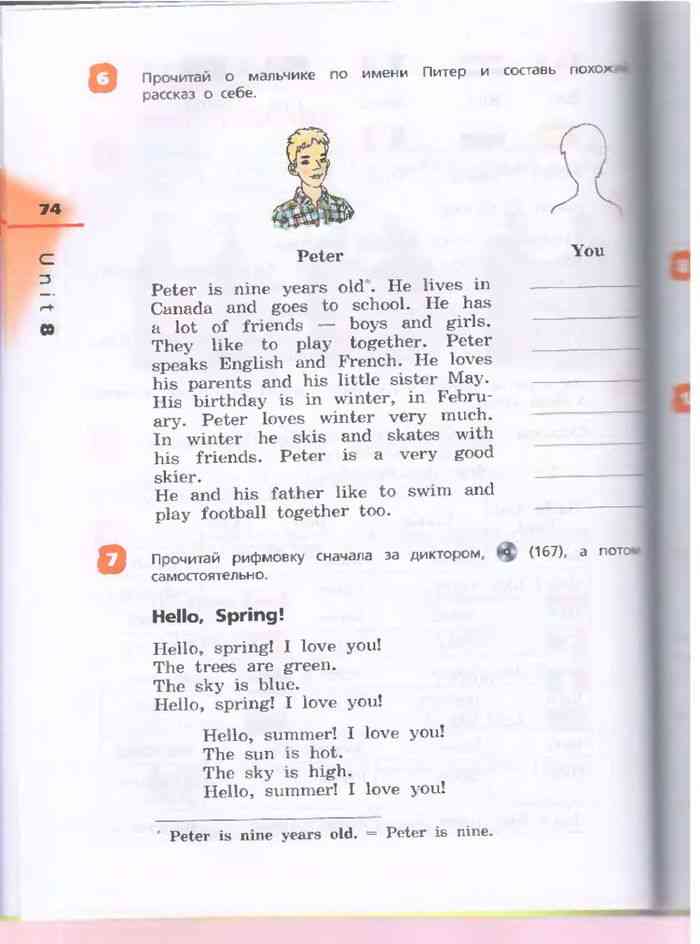 6 Прочитай о мальчике по имени Питер и составь
рассказ о себе.
74
Unit 8
Peter
You
Peter is nine years old*. He lives in
Canada and goes to school. He has
a lot of friends — boys and girls.
They like to play together. Peter
speaks English and French. He loves
his parents and his little sister May.
His birthday is in winter, in Febru-
ary. Peter loves winter very much.
In winter he skis and skates with
his friends. Peter is a very good
skier.
He and his father like to swim and
play football together too.
7 Прочитай рифмовку сначала за диктором, (167), а
самостоятельно.
Hello, Spring!
Hello, spring! I love you!
The trees are green.
The sky is blue.
Hello, spring! I love you!
Hello, summer! I love you!
The sun is hot.
The sky is high.
Hello, summer! I love you!
* Peter is nine years old. = Peter is nine.